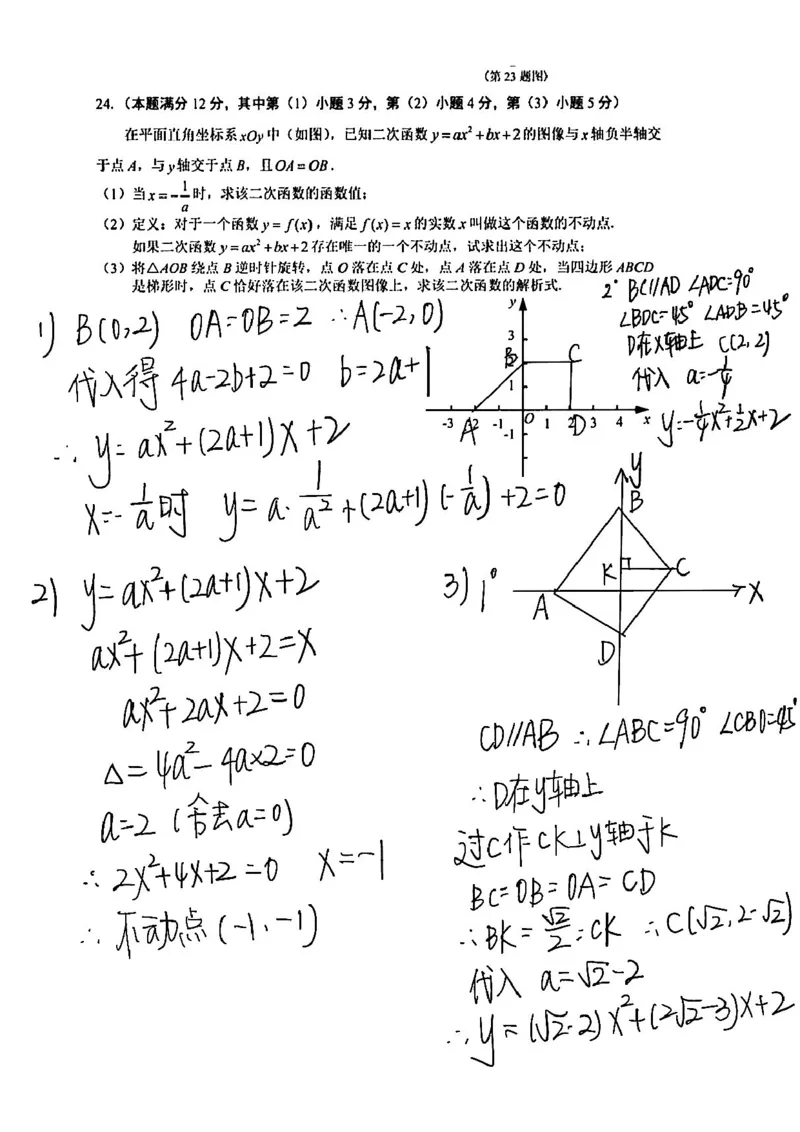 (第23题图)
24.（本题满分12分，其中第（1）小题3分，第（2）小题4分，第（3）小题5分）
在平面直角坐标系xOy中（如图），已知二次函数y=ax²+bx+2的图像与x轴负半轴交
于点A，与y轴交于点B，且OA=OB．
（1）当x=-1/a时，求该二次函数的函数值；
（2）定义：对于一个函数y=f(x)，满足f(x)=x的实数x叫做这个函数的不动点．
如果二次函数y=ax²+bx+2存在唯一的一个不动点，试求出这个不动点；
（3）将△AOB绕点B逆时针旋转，点O落在点C处，点A落在点D处，当四边形ABCD
是梯形时，点C恰好落在该二次函数图像上，求该二次函数的解析式．
2° BC//AD ∠ADC=90°
∠BDC=45° ∠ADB=45°
D在X轴上 C(2,2)
代入 a=-1/4
y=-1/4x²+1/2x+2
y
3
B
C
1
-3 -2 -1 O 1 2 3 4 x
A
D
-1
1) B(0,2) OA=OB=2 ∴A(-2,0)
代入得 4a-2b+2=0 b=2a+1
∴y=ax²+(2a+1)x+2
x=-1/a时 y=a·1/a²+(2a+1)(-1/a)+2=0
2) y=ax²+(2a+1)x+2
ax²+(2a+1)x+2=x
ax²+2ax+2=0
△=4a²-4a×2=0
a=2（舍去a=0）
∴2x²+4x+2=0 x=-1
∴不动点(-1,-1)
3) 1°
y
B
K
C
A
X
D
CD//AB ∴∠ABC=90° ∠CBD=45°
∴D在y轴上
过C作CK⊥y轴于K
BC=OB=OA=CD
∴BK=√2/2=CK ∴C(√2,2-√2)
代入 a=√2-2
∴y=(√2-2)x²+(2√2-3)x+2